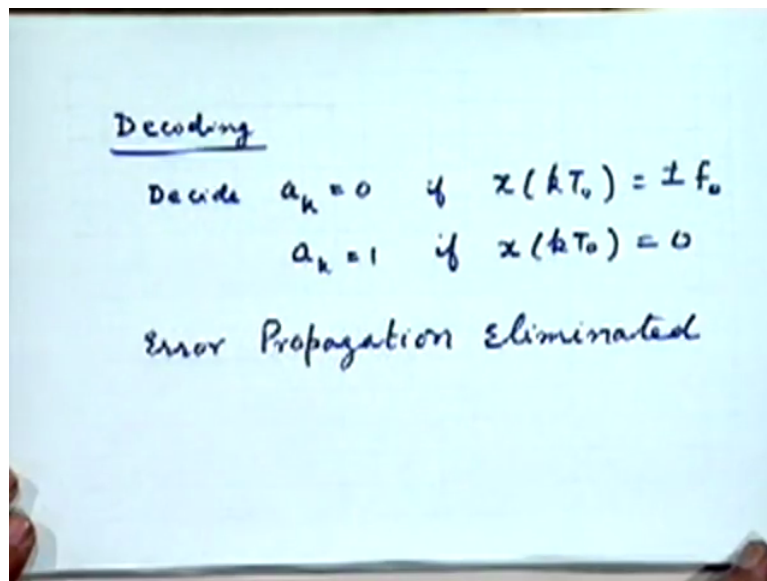 Decoding
Decide a_k = 0 if x(kT_0) = ± f_0
a_k = 1 if x(kT_0) = 0
Error Propagation Eliminated